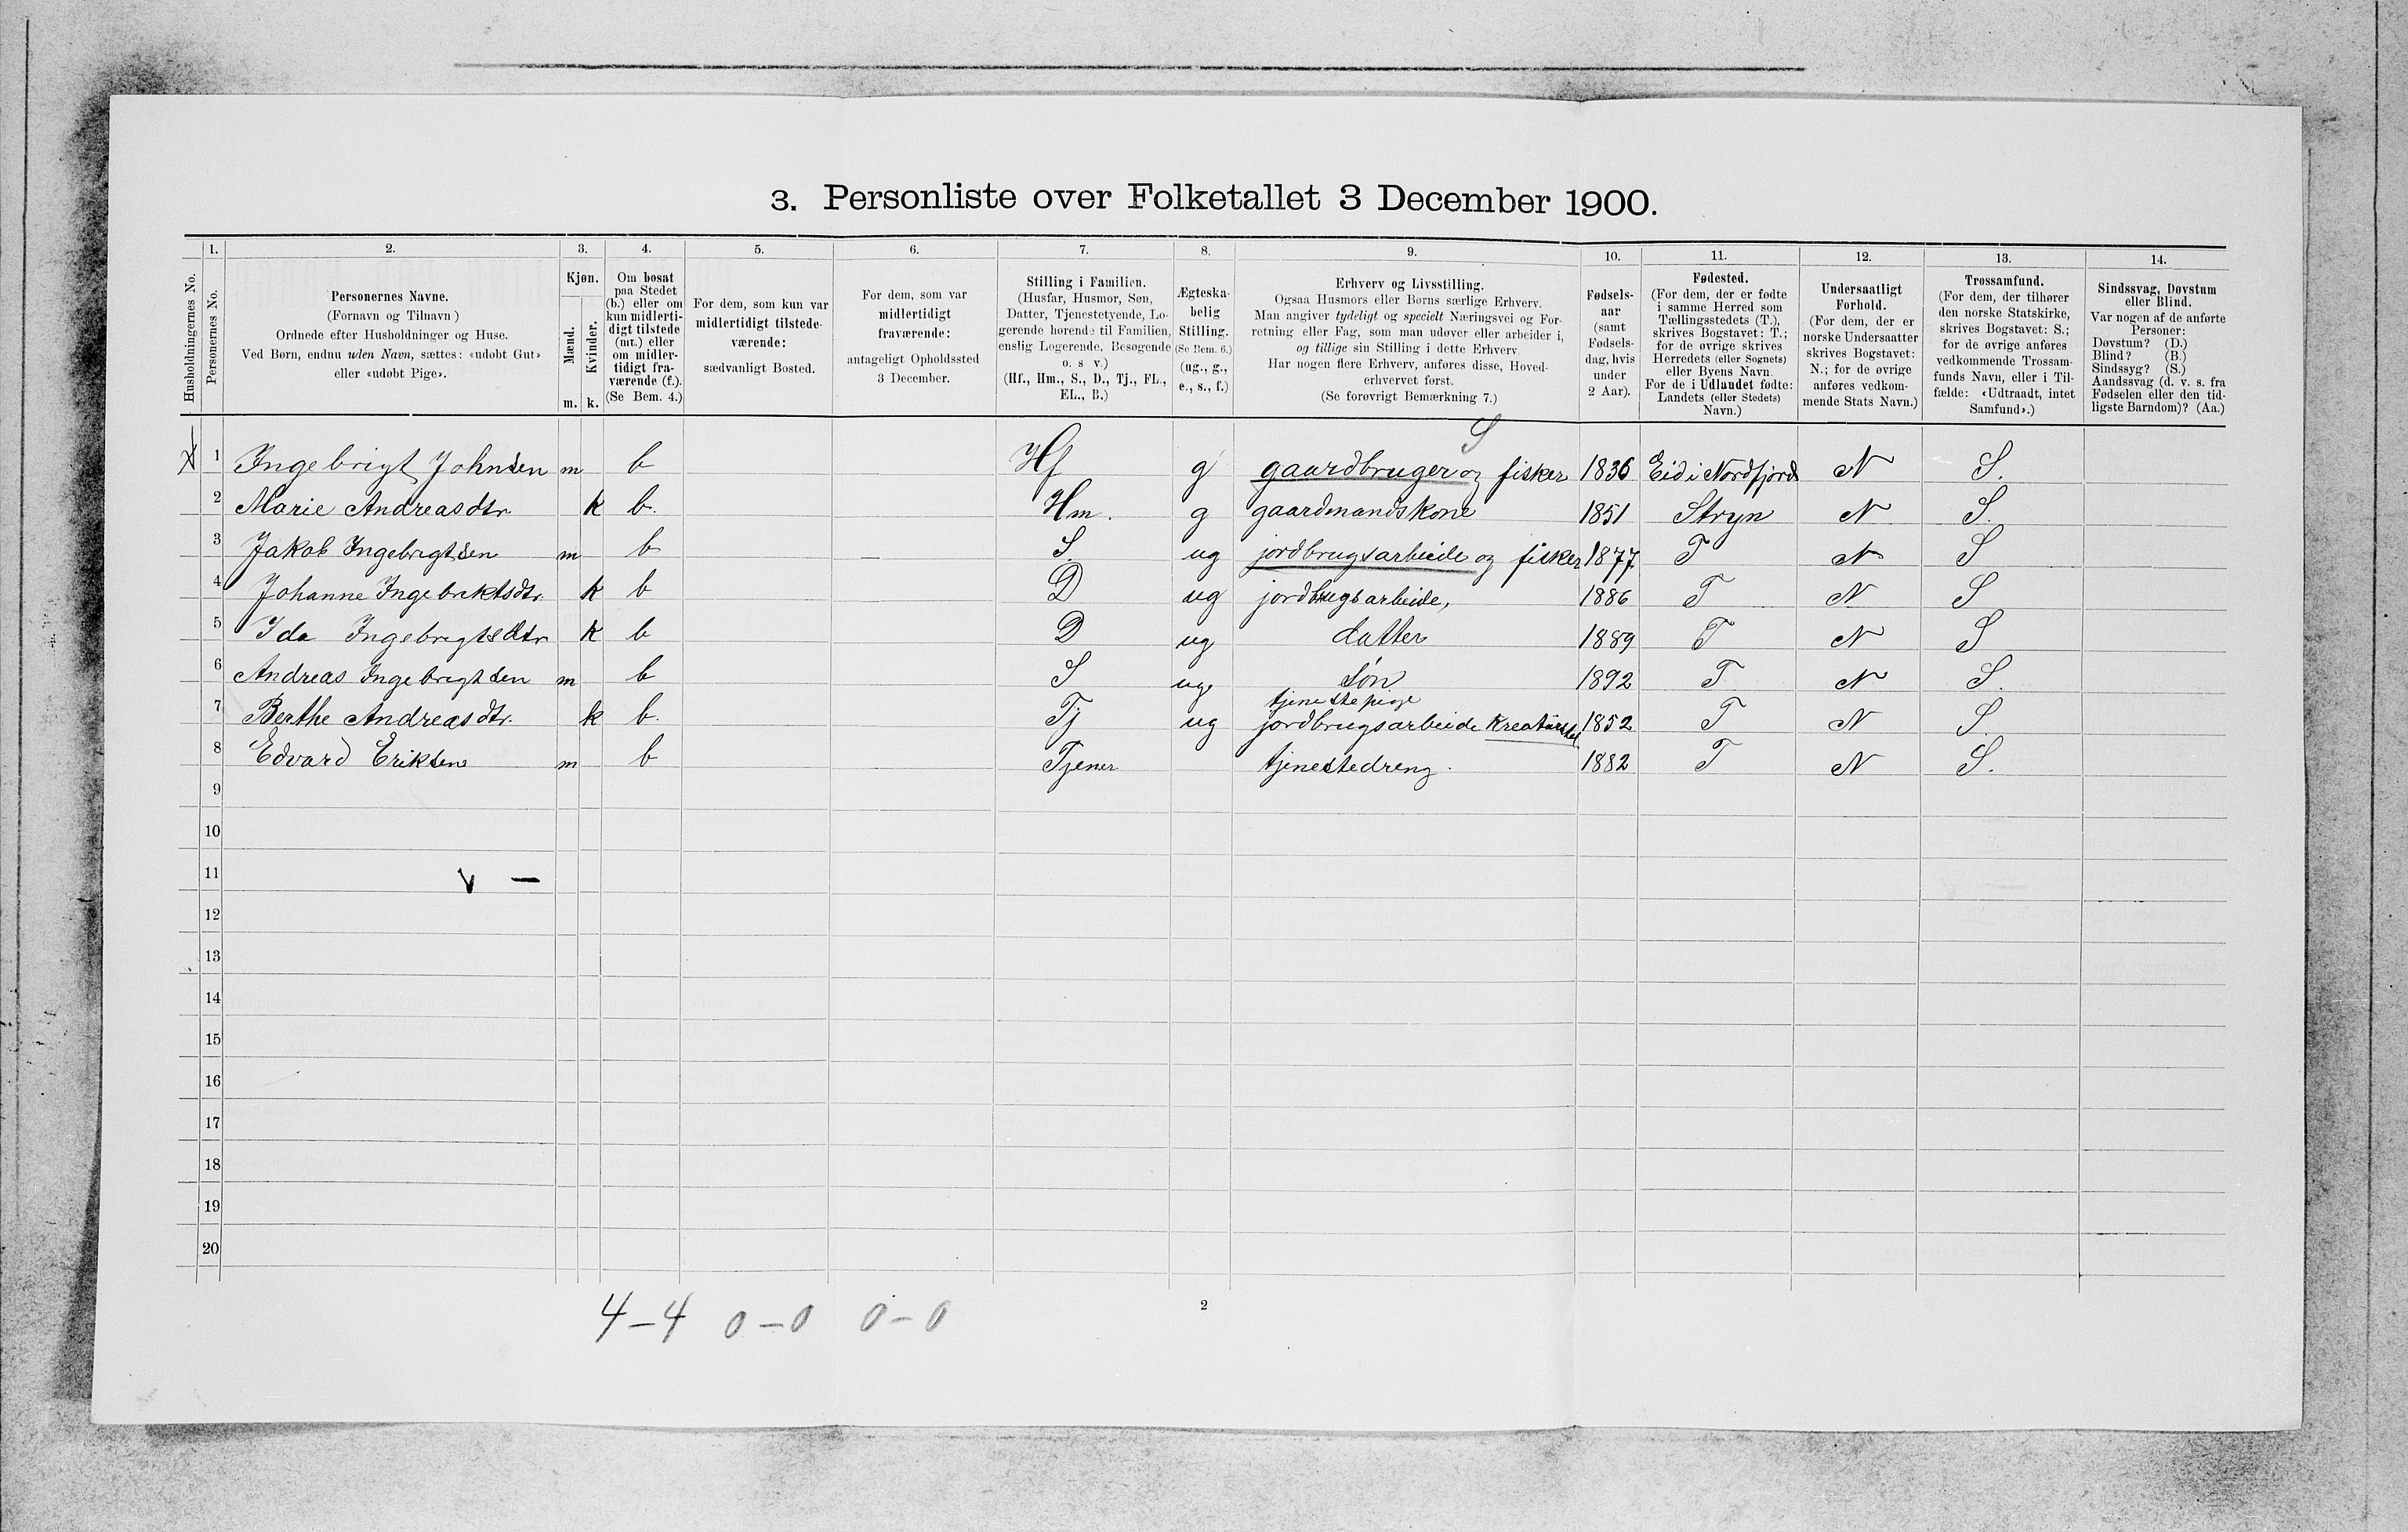 3. Personliste over Folketallet 3 December 1900.
1. 2. 3. 4. 5. 6. 7. 8. 9. 10. 11. 12. 13. 14.
Husholdningernes No.
Personernes No.
Personernes Navne.
(Fornavn og Tilnavn)
Ordnede efter Husholdninger og Huse.
Ved Børn, endnu uden Navn, sættes: «udøbt Gut»
eller «udøbt Pige».
Kjøn.
Mænd.
Kvinder.
m. k.
Om bosat
paa Stedet
(b.) eller om
kun midlerti-
digt tilstede
(mt.) eller
om midler-
tidigt fra-
værende (f.).
(Se Bem. 4.)
For dem, som kun var
midlertidigt tilstede-
værende:
sædvanligt Bosted.
For dem, som var
midlertidigt
fraværende:
antageligt Opholdssted
3 December.
Stilling i Familien.
(Husfar, Husmor, Søn,
Datter, Tjenestetyende, Lo-
gerende hørende til Familien,
enslig Logerende, Besøgende
o. s v.)
(Hf., Hm., S., D., Tj., FL.,
EL., B.)
Ægteska-
belig
Stilling.
(Se Bem. 6.)
(ug., g.,
e., s., f.)
Erhverv og Livsstilling.
Ogsaa Husmors eller Børns særlige Erhverv.
Man angiver tydeligt og specielt Næringsvei og For-
retning eller Fag, som man udøver eller arbeider i,
og tillige sin Stilling i dette Erhverv.
Har nogen flere Erhverv, anføres disse, Hoved-
erhvervet først.
(Se forøvrigt Bemærkning 7.)
Fødsels-
aar
(samt
Fødsels-
dag, hvis
under
2 Aar).
Fødested.
(For dem, der er fødte
i samme Herred som
Tællingsstedets (T.),
skrives Bogstavet: T.;
for de øvrige skrives
Herredets (eller Sognets)
eller Byens Navn.
For de i Udlandet fødte:
Landets (eller Stedets)
Navn.)
Undersaatligt
Forhold.
(For dem, der er
norske Undersaatter
skrives Bogstavet:
N.; for de øvrige
anføres vedkom-
mende Stats Navn.)
Trossamfund.
(For dem, der tilhører
den norske Statskirke,
skrives Bogstavet: S.;
for de øvrige anføres
vedkommende Trossam-
funds Navn, eller i Til-
fælde: «Udtraadt, intet
Samfund».)
Sindssvag, Døvstum
eller Blind.
Var nogen af de anførte
Personer:
Døvstum? (D.)
Blind? (B.)
Sindssyg? (S.)
Aandssvag (d. v. s. fra
Fødselen eller den tid-
ligste Barndom)? (Aa.)
S
1 Ingebrigt Johnsen m b Hf g gaardbruger og fisker 1836 Eid i Nordfjord N S.
2 Marie Andreasdtr k b. Hm. g gaardmandskone 1851 Stryn N S.
3 Jakob Ingebrigtsen m b S. ug jordbrugsarbeide og fisker 1877 T N S
4 Johanne Ingebriktsdtr. k b D ug jordbrugsarbeide, 1886 T N S
5 Ida Ingebrigtsdtr k b D ug datter 1889 T N S
6 Andreas Ingebrigtsen m b S ug søn 1892 T N S.
tjenestepige
7 Berthe Andreasdtr. k b. Tj ug jordbrugsarbeide 1852 T N S.
8 Edvard Eriksen m b Tjener tjenestedreng. 1882 T N S.
9
10
11 v —
12
13
14
15
16
17
18
19
20
4–4 0–0 0–0
2